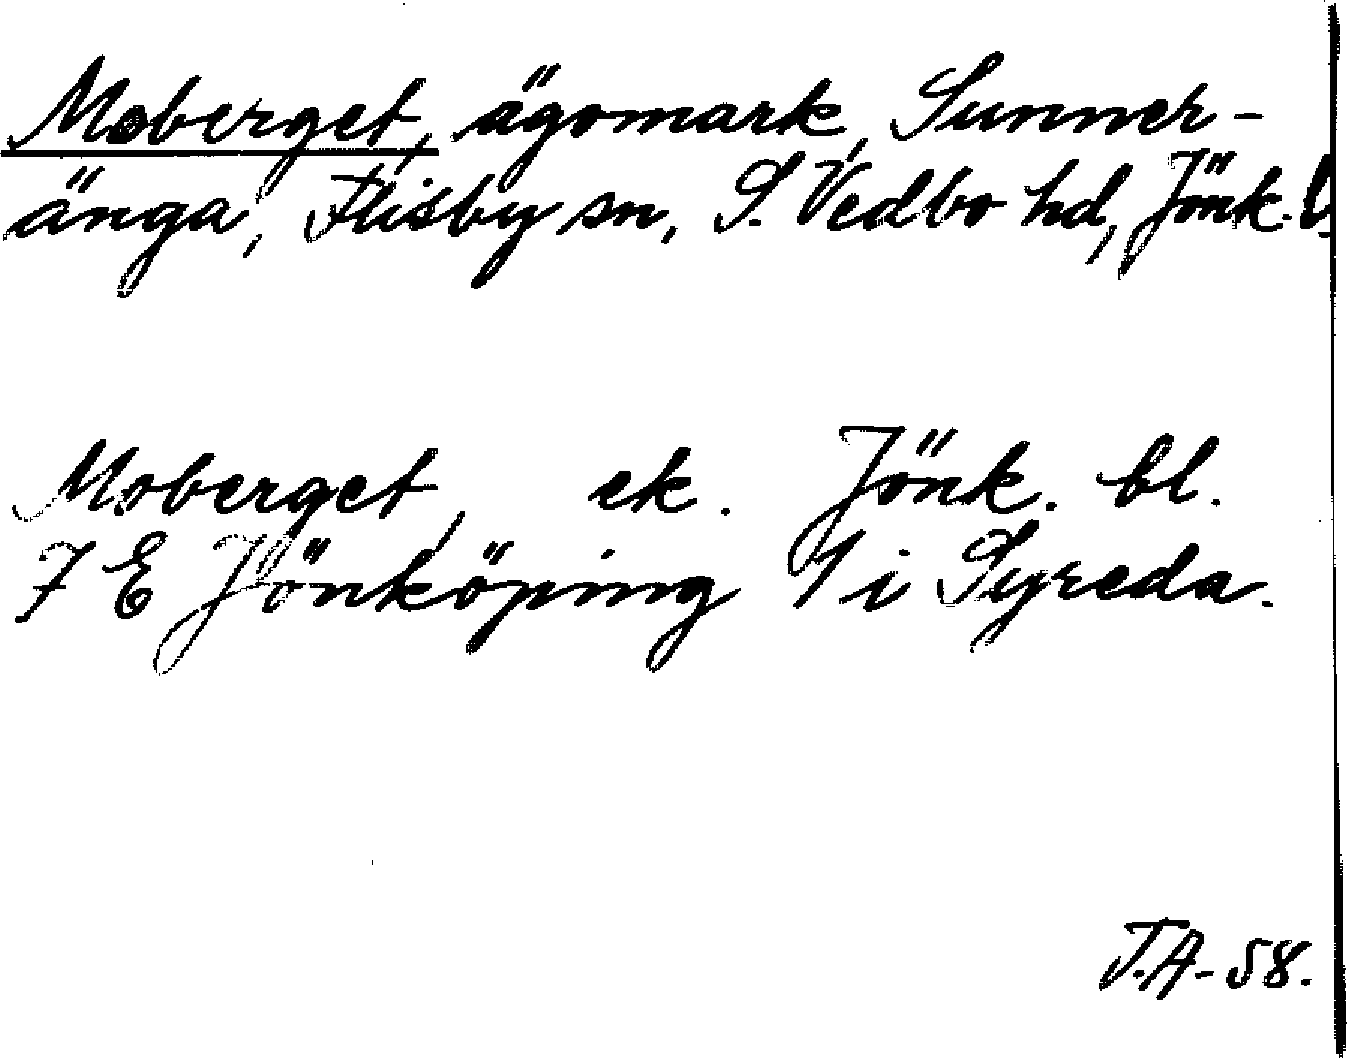 Moberget, ägomark, Sunner-
änga, Flisby sn, S. Vedbo hd, Jönk. l.
Moberget, ek. Jönk. bl.
7 E Jönköping 1 i Syreda.
T.A-58.